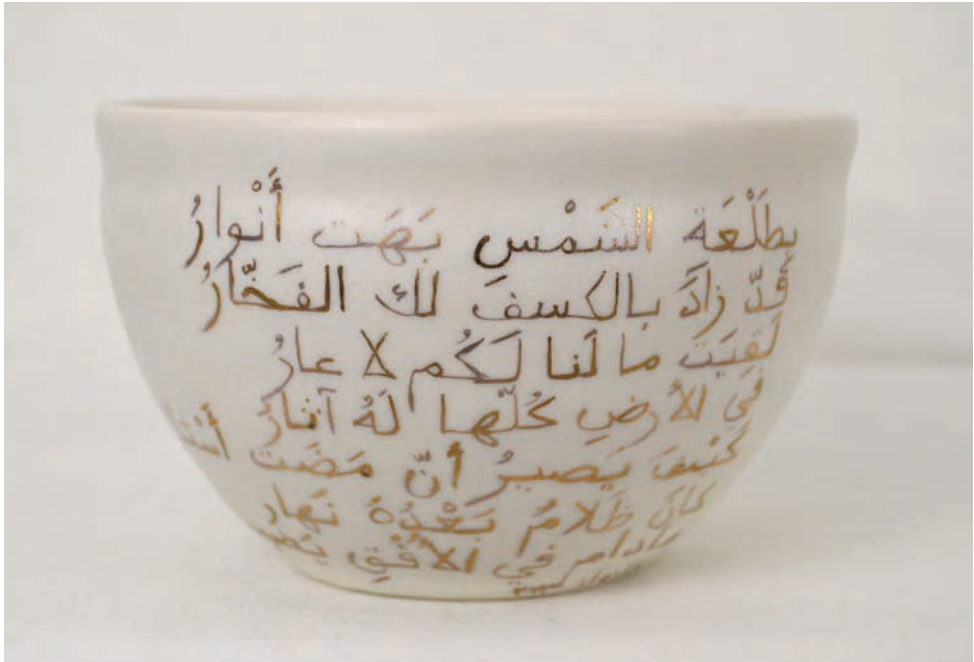 بِطَلْعَة الشَمْسِ بَهَت أَنْوارُ
قَدّ زادَ بالكسفِ لك الفَخّارُ
لَقيَت ما لَنا لَكُم لا عارُ
في الأرضِ كُلّها لَهُ آثارُ
يَصيرُ أنّ مَضَت
كانَ ظَلامُ بَعْدُهُ نَهار
مادام في الأفُقِ